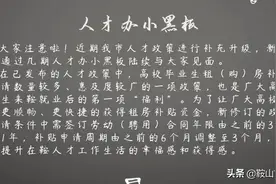 人才办小黑板
大家注意啦！近期我市人才政策进行补充升级，新
通过几期人才办小黑板陆续与大家见面。
在已发布的人才政策中，高校毕业生租（购）房补
请数量较多、惠及度较广的一项政策，也是广大高
生来鞍就业后的第一项“福利”。为了让广大高校
更顺畅、更快捷的获得租房补贴资金，新修订的政
条件中需签订劳动（聘用）合同年限由之前的3
1年，补贴申请周期由之前的6个月调整至3个月，
提升在鞍人才工作生活的幸福感和获得感。
头条 @鞍山